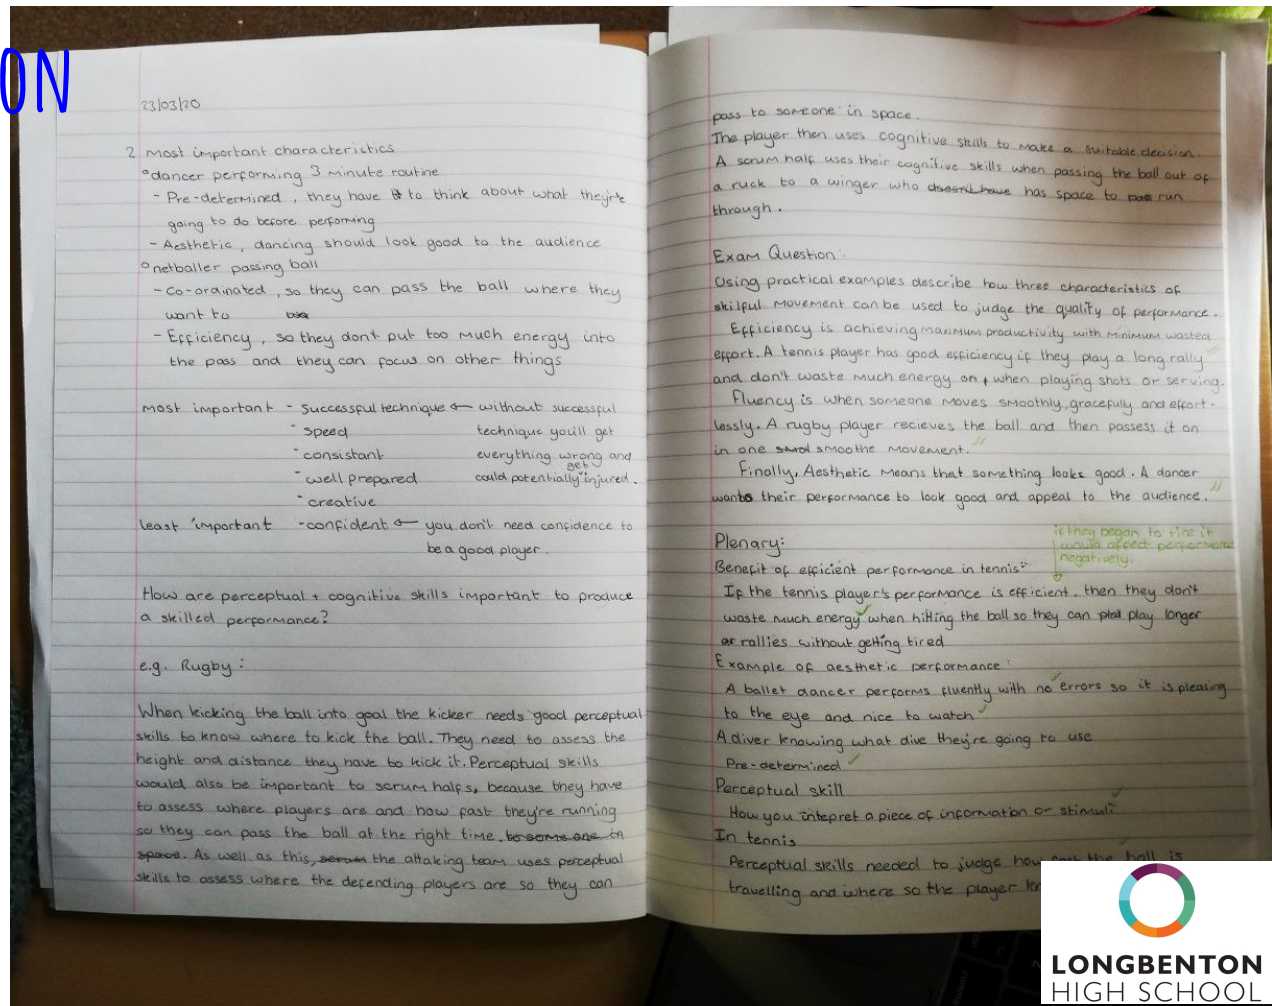 ON
23/03/20
2 most important characteristics
°dancer performing 3 minute routine
- Pre-determined, they have to think about what they're
going to do before performing
- Aesthetic, dancing should look good to the audience
°netballer passing ball
- Co-ordinated, so they can pass the ball where they
want to
- Efficiency, so they don't put too much energy into
the pass and they can focus on other things
most important - Successful technique ← without successful
- speed technique you'll get
- consistant everything wrong and
- well prepared could potentially get injured.
- creative
least important - confident ← you don't need confidence to
be a good player.
How are perceptual + cognitive skills important to produce
a skilled performance?
e.g. Rugby:
When kicking the ball into goal the kicker needs good perceptual
skills to know where to kick the ball. They need to assess the
height and distance they have to kick it. Perceptual skills
would also be important to scrum halfs, because they have
to assess where players are and how fast they're running
so they can pass the ball at the right time. to some one in
space. As well as this, scrum the attaking team uses perceptual
skills to assess where the defending players are so they can
pass to someone in space.
The player then uses cognitive skills to make a suitable decision.
A scrum half uses their cognitive skills when passing the ball out of
a ruck to a winger who doesn't have has space to run
through.
Exam Question:
Using practical examples describe how three characteristics of
skilful movement can be used to judge the quality of performance.
Efficiency is achieving maximum productivity with minimum wasted
effort. A tennis player has good efficiency if they play a long rally
and don't waste much energy on, when playing shots or serving.
Fluency is when someone moves smoothly, gracefully and effort-
lessly. A rugby player recieves the ball and then passess it on
in one smoothe movement.
Finally, Aesthetic means that something looks good. A dancer
wants their performance to look good and appeal to the audience.
if they began to tire it
would affect performance
negatively.
Plenary:
Benefit of efficient performance in tennis:
If the tennis player's performance is efficient, then they don't
waste much energy when hitting the ball so they can play longer
rallies without getting tired
Example of aesthetic performance:
A ballet dancer performs fluently with no errors so it is pleasing
to the eye and nice to watch
A diver knowing what dive they're going to use
Pre-determined
Perceptual skill
How you intepret a piece of information or stimuli
In tennis
Perceptual skills needed to judge how fast the ball is
travelling and where so the player
LONGBENTON
HIGH SCHOOL